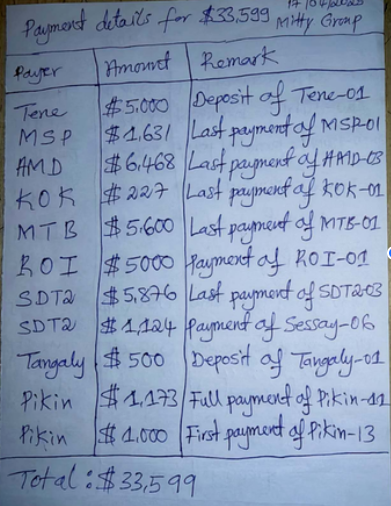 Payment details for $33,599 Mitty Group
Payer Amount Remark
Tene $5,000 Deposit of Tene-01
MSP $1,631 Last payment of MSP-01
AMD $6,468 Last payment of AMD-03
KOK $227 Last payment of KOK-01
MTB $5,600 Last payment of MTB-01
ROI $5000 Payment of ROI-01
SDT2 $5,876 Last payment of SDT2-03
SDT2 $1,124 Payment of Sessay-06
Tangaly $500 Deposit of Tangaly-01
Pikin $1,173 Full payment of Pikin-11
Pikin $1,000 First payment of Pikin-13
Total: $33,599